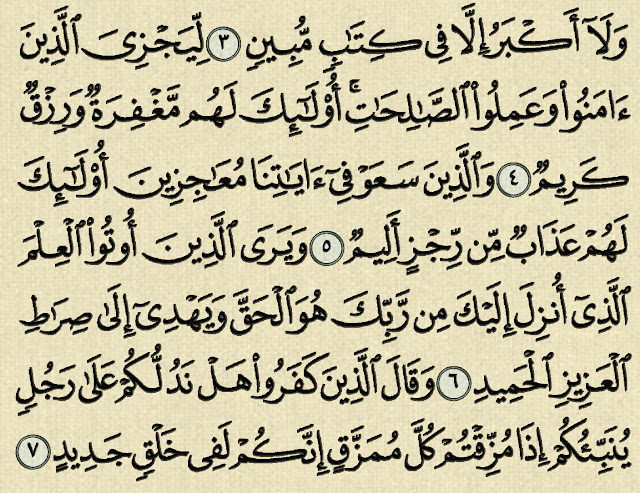 وَلَآ أَكْبَرُ إِلَّا فِى كِتَٰبٍ مُّبِينٍ ٣ لِّيَجْزِىَ ٱلَّذِينَ
ءَامَنُوا۟ وَعَمِلُوا۟ ٱلصَّٰلِحَٰتِ ۚ أُو۟لَٰٓئِكَ لَهُم مَّغْفِرَةٌ وَرِزْقٌ
كَرِيمٌ ٤ وَٱلَّذِينَ سَعَوْ فِىٓ ءَايَٰتِنَا مُعَٰجِزِينَ أُو۟لَٰٓئِكَ
لَهُمْ عَذَابٌ مِّن رِّجْزٍ أَلِيمٌ ٥ وَيَرَى ٱلَّذِينَ أُوتُوا۟ ٱلْعِلْمَ
ٱلَّذِىٓ أُنزِلَ إِلَيْكَ مِن رَّبِّكَ هُوَ ٱلْحَقَّ وَيَهْدِىٓ إِلَىٰ صِرَٰطِ
ٱلْعَزِيزِ ٱلْحَمِيدِ ٦ وَقَالَ ٱلَّذِينَ كَفَرُوا۟ هَلْ نَدُلُّكُمْ عَلَىٰ رَجُلٍ
يُنَبِّئُكُمْ إِذَا مُزِّقْتُمْ كُلَّ مُمَزَّقٍ إِنَّكُمْ لَفِى خَلْقٍ جَدِيدٍ ٧